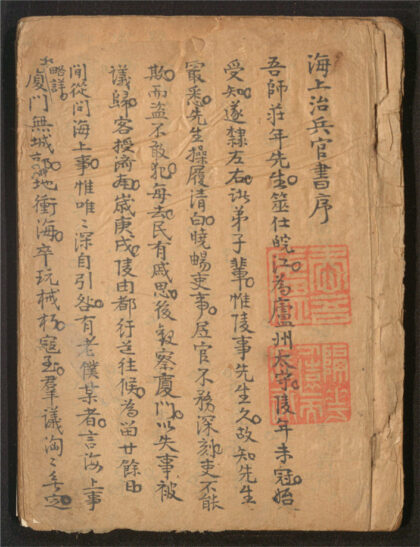 海上治兵官書序
吾師莊年先生筮仕皖江為廬州太守陵年未冠始
受知遂隸左右　弟子輩惟陵事先生久故知先生
最悉先生操履清白曉暢吏事居官不務深刻吏不能
欺而盜不敢犯每去民有戚思後觀察廈門以失事被
議歸客授濟南歲庚戌陵由都行　往候為留廿餘日
間從問海上事惟唯々深自引咎有老僕某者言海上事
略詳廈門無城　地衝海卒玩械朽寇至羣議洶々